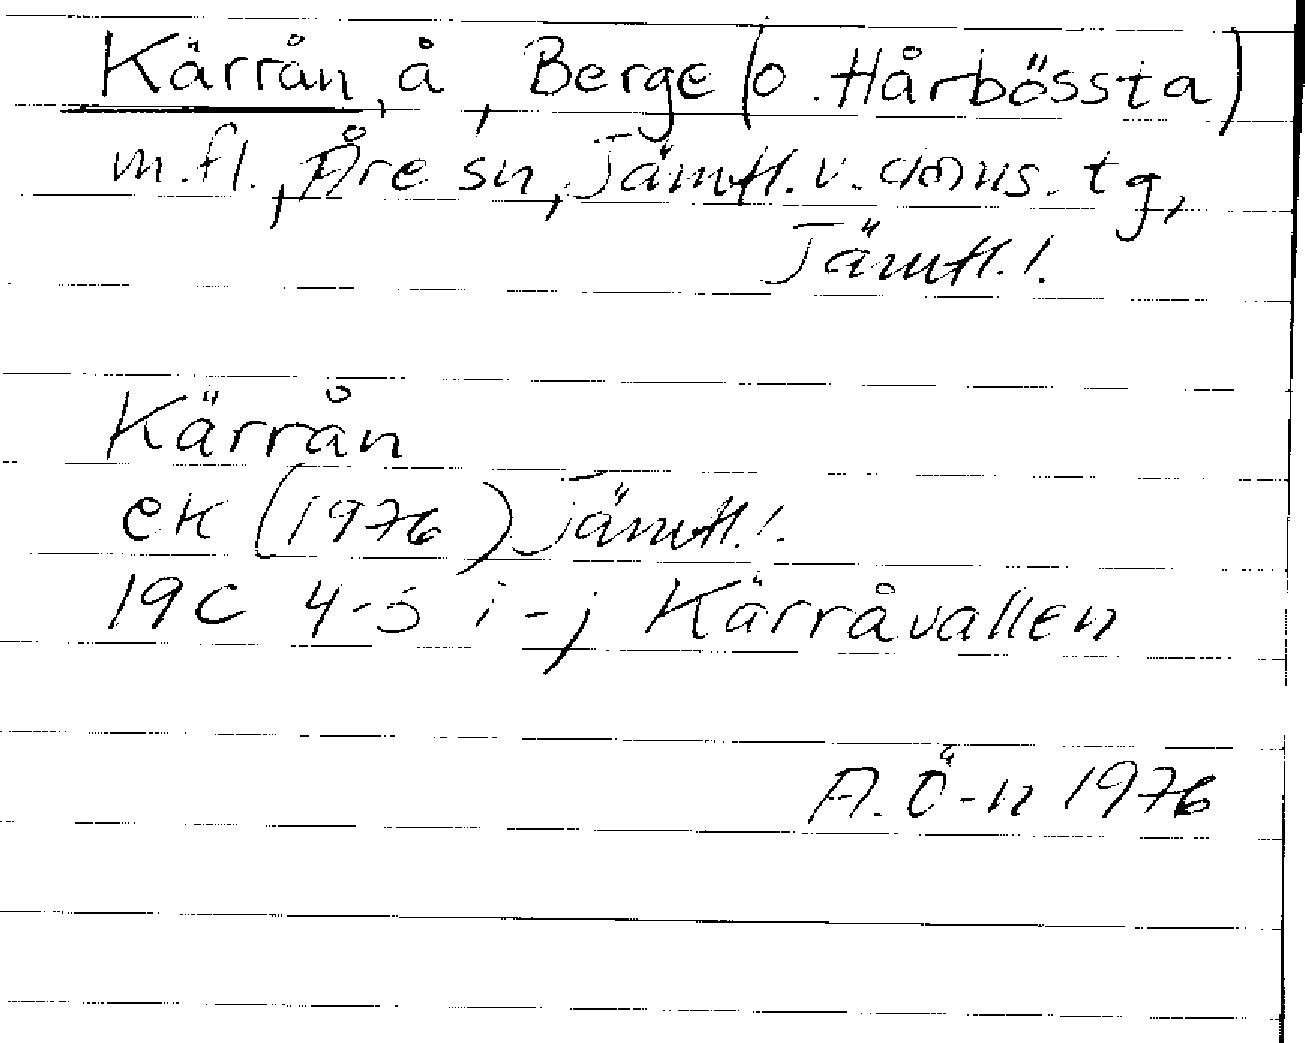 Kärrån, å, Berge (o. Hårbössta)
m.fl., Åre sn, Jämtl. v. doms. tg,
Jämtl.
Kärrån
ek (1976) Jämtl.
19C 4-5 i-j Kärråvallen
A. Ö-n 1976